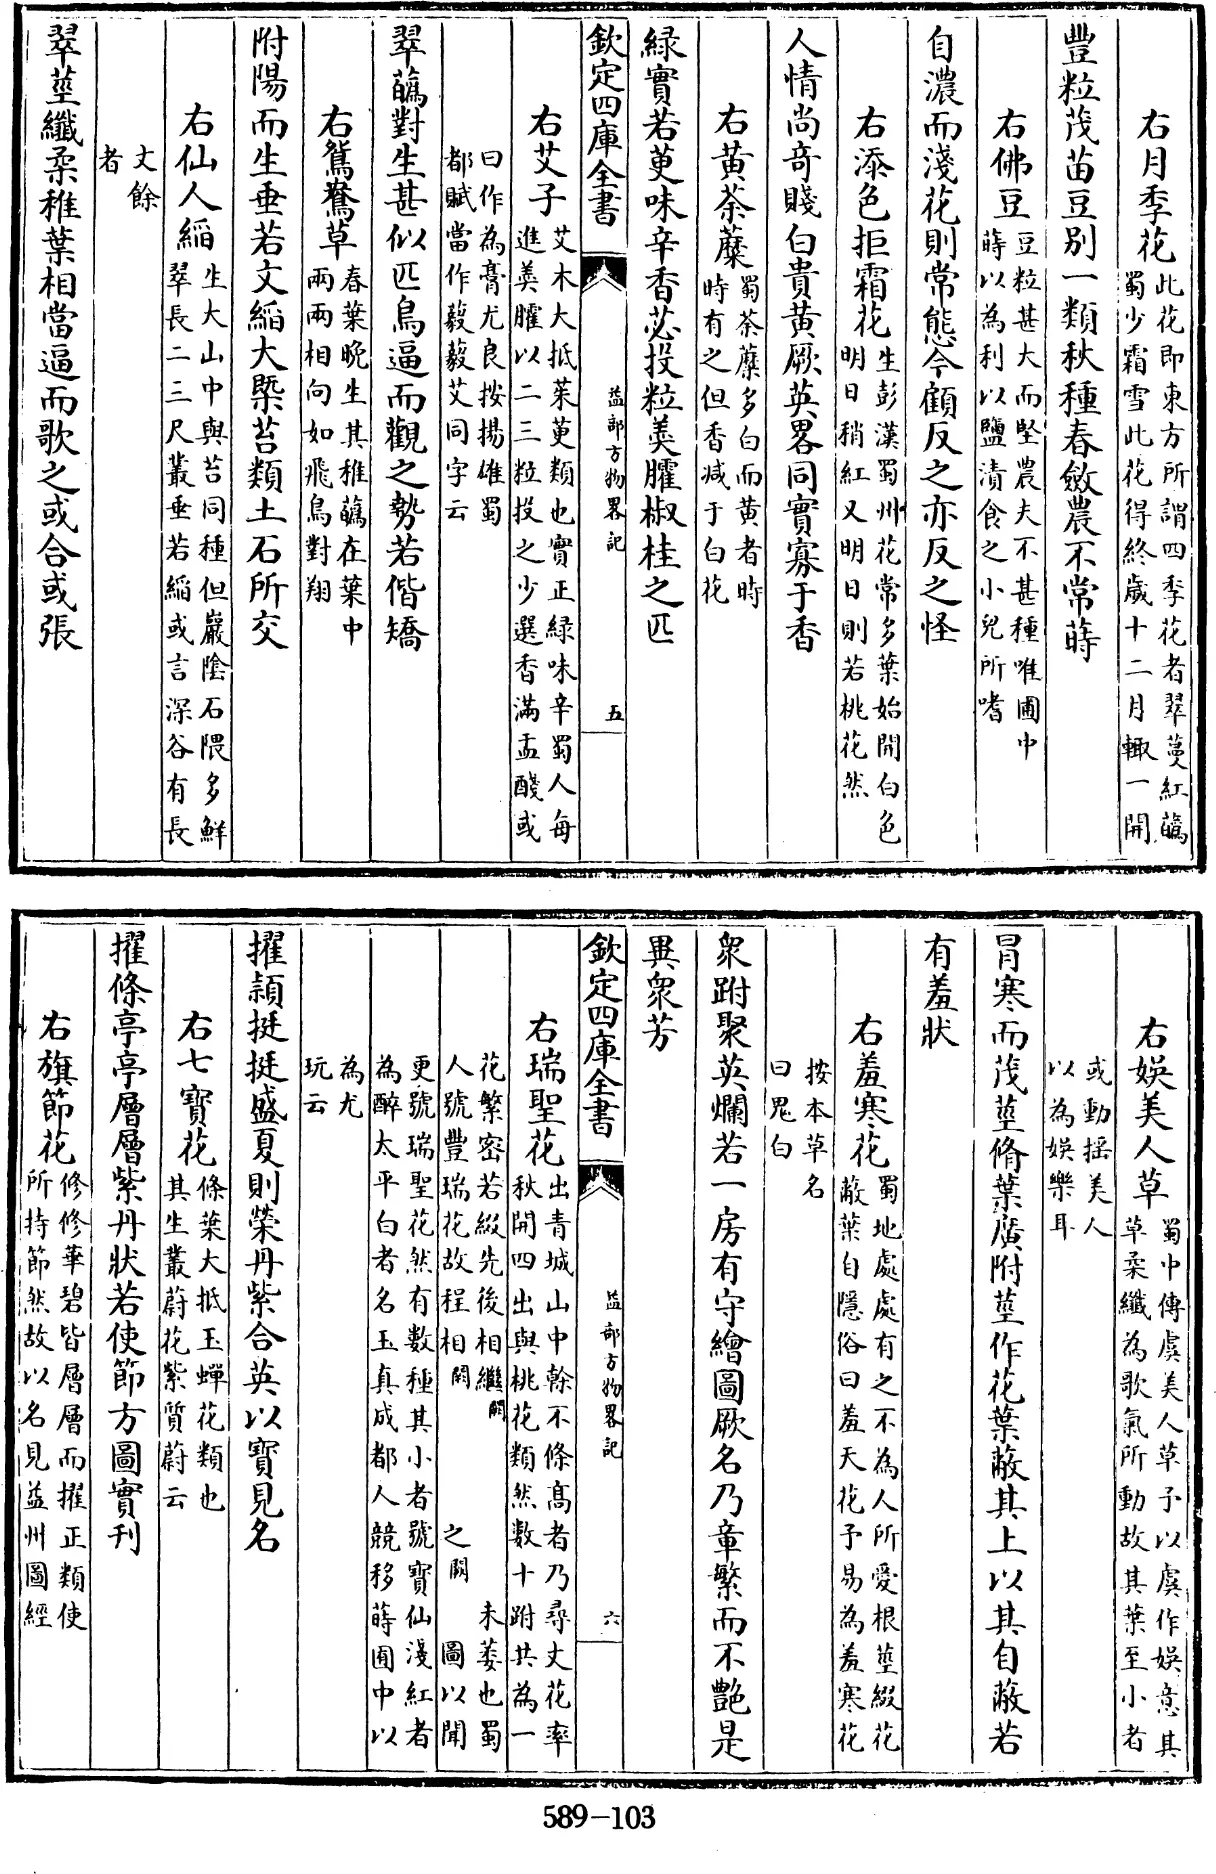 右月季花此花即東方所謂四季花者翠蔓紅蘤
蜀少霜雪此花得終歲十二月輙一開
豐粒茂苗豆別一類秋種春斂農不常蒔
右佛豆豆粒甚大而堅農夫不甚種唯圃中
蒔以為利以鹽漬食之小兒所嗜
自濃而淺花則常態今顧反之亦反之怪
右添色拒霜花生彭漢蜀州花常多葉始開白色
明日稍紅又明日則若桃花然
人情尚奇賤白貴黄厥英畧同實寡于香
右黄荼蘼蜀荼蘼多白而黄者時
時有之但香减于白花
緑實若萸味辛香苾投粒羹臛椒桂之匹
欽定四庫全書
益部方物畧記
五
右艾子艾木大抵茱萸類也實正緑味辛蜀人每
進羹臛以二三粒投之少選香滿盂醆或
曰作為膏尤良按揚雄蜀
都賦當作藙藙艾同字云
翠蘤對生甚似匹鳥逼而觀之勢若偕矯
右鴛鴦草春葉晚生其稚蘤在葉中
兩兩相向如飛鳥對翔
附陽而生垂若文緺大槩苔類土石所交
右仙人緺生大山中與苔同種但巖陰石隈多鮮
翠長二三尺叢垂若緺或言深谷有長
丈餘
者
翠莖纖柔稚葉相當逼而歌之或合或張
右娛美人草蜀中傳虞美人草予以虞作娛意其
草柔纖為歌氣所動故其葉至小者
或動揺美人
以為娛樂耳
冐寒而茂莖脩葉廣附莖作花葉蔽其上以其自蔽若
有羞狀
右羞寒花蜀地處處有之不為人所愛根莖綴花
蔽葉自隱俗曰羞天花予易為羞寒花
按本草名
曰鬼臼
衆跗聚英爛若一房有守繪圖厥名乃章繁而不艷是
異衆芳
欽定四庫全書
益部方物畧記
六
右瑞聖花出青城山中榦不條髙者乃尋丈花率
秋開四出與桃花類然數十跗共為一
花繁密若綴先後相繼闕未萎也蜀
人號豐瑞花故程相闕之闕圖以聞
更號瑞聖花然有數種其小者號寳仙淺紅者
為醉太平白者名玉真成都人競移蒔圃中以
為尤
玩云
擢頴挺挺盛夏則榮丹紫合英以寳見名
右七寳花條葉大抵玉蟬花類也
其生叢蔚花紫質蔚云
擢條亭亭層層紫丹狀若使節方圖實刋
右旗節花修修華碧皆層層而擢正類使
所持節然故以名見益州圖經
589-103